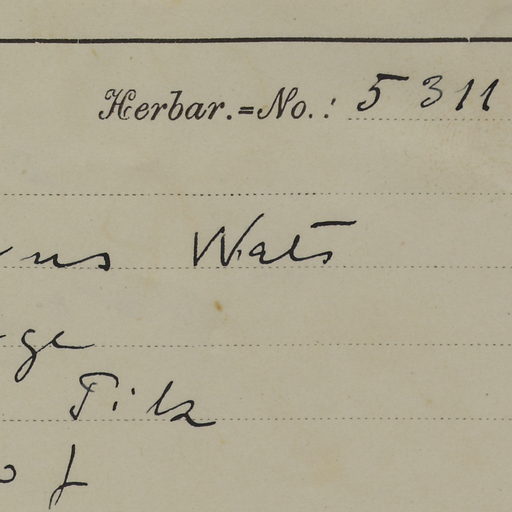 Herbar.=No.: 5311
us Wats
ge
Pilz
of